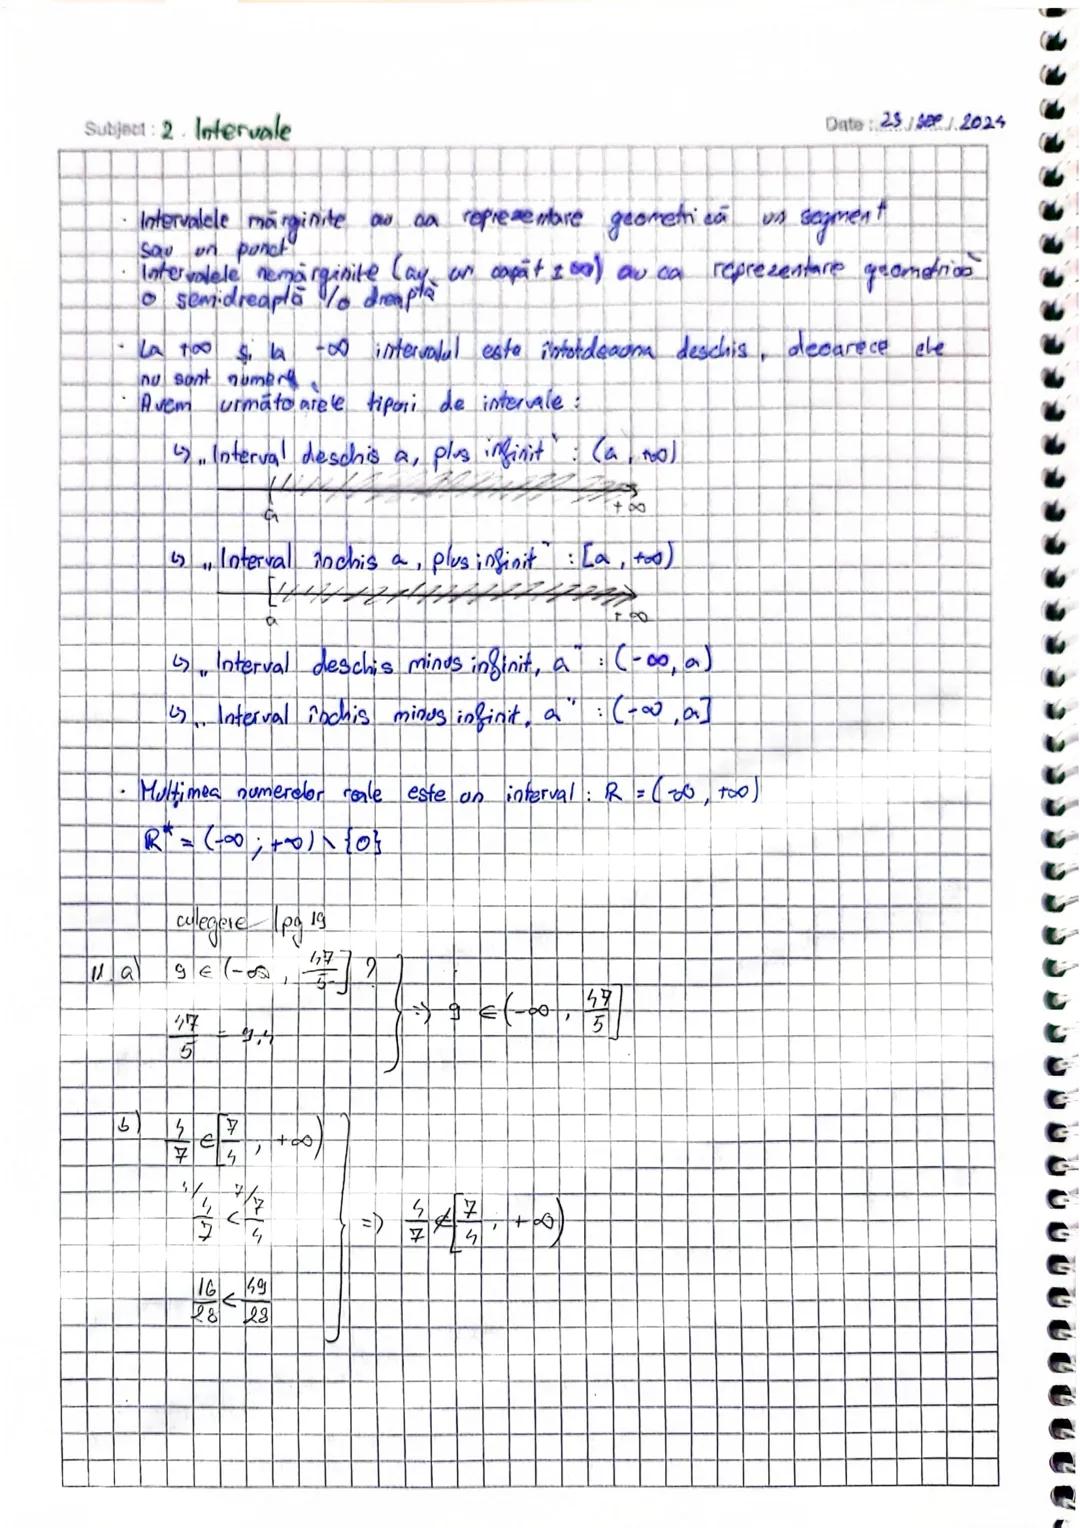 Subject: 2. Intervale
Date: 23 / SEP / 2024
· Intervalele mărginite au ca reprezentare geometrică un segment
sau un punct
· Intervalele nemărginite (au un capăt ±∞) au ca reprezentare geometrică
o semidreaptă /o dreaptă
· La +∞ și la -∞ intervalul este întotdeauna deschis, deoarece ele
nu sunt numere
· Avem următoarele tipuri de intervale:
↳ „Interval deschis a, plus infinit" : (a, +∞)
a +∞
↳ „Interval închis a, plus infinit" : [a, +∞)
a +∞
↳ „Interval deschis minus infinit, a" : (-∞, a)
↳ „Interval închis minus infinit, a" : (-∞, a]
· Mulțimea numerelor reale este un interval: R = (-∞, +∞)
R* = (-∞ ; +∞) \ {0}
culegere /pg 19
11. a) 9 ∈ (-∞, 47/5] ?
47/5 = 9,4
=> 9 ∈ (-∞, 47/5]
b) 4/7 ∈ [7/4, +∞)
4/ 4/7 < 7/ 7/4
=> 4/7 ∉ [7/4; +∞)
16/28 < 49/28